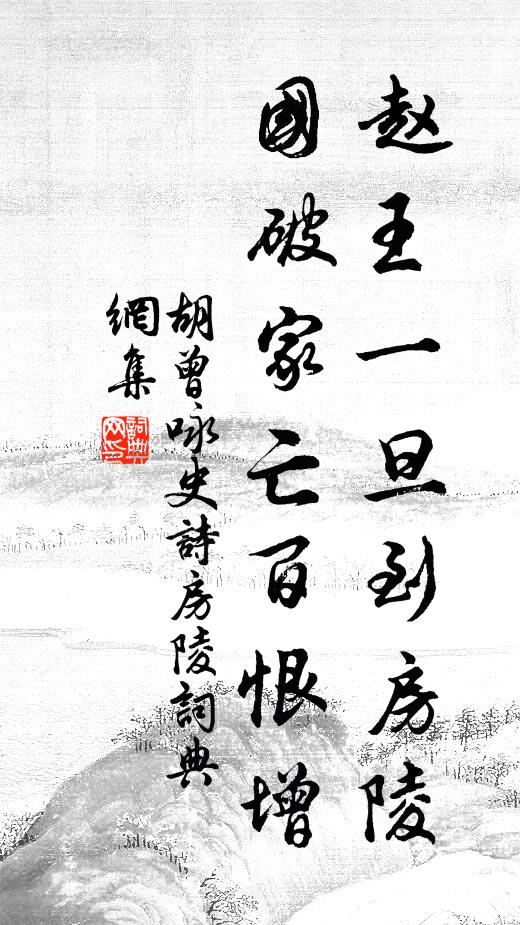 赵王一旦到房陵
國破家亡百恨增
胡曾咏史詩房陵詞典
網集
詞典
网印